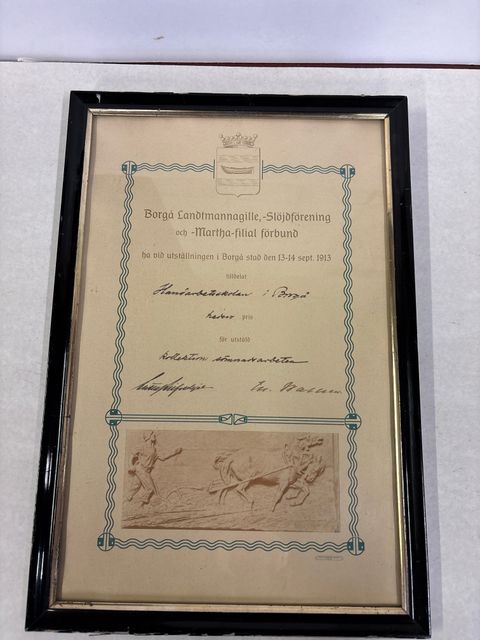 Borgå Landtmannagille,-Slöjdförening
och -Martha-filial förbund
ha vid utställningen i Borgå stad den 13-14 sept. 1913
tilldelat
Handarbetsskolan i Borgå
heders pris
för utställd
kollektion sömnadsarbeten